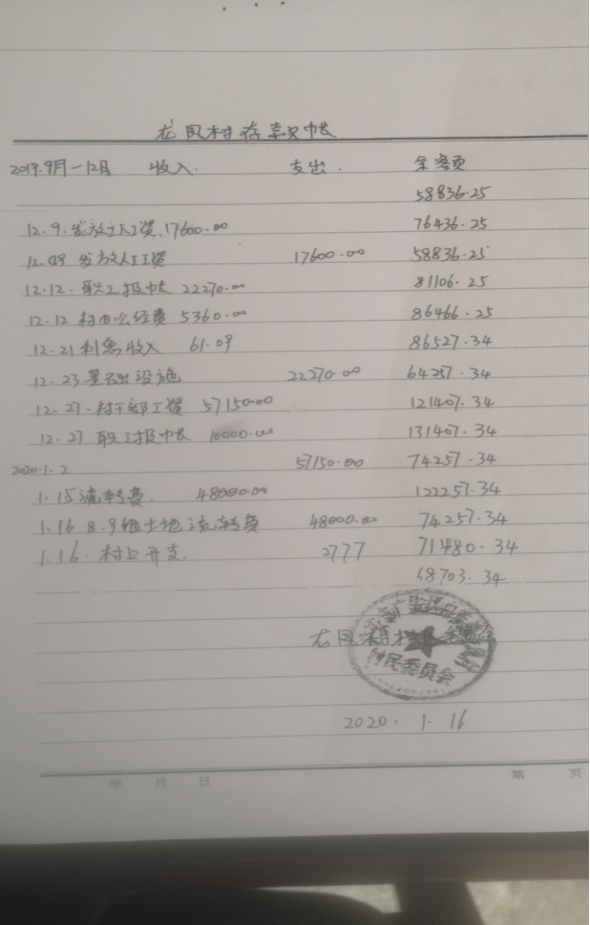 龙凤村存款帐
2019.9月-12月 收入. 支出. 余额页
58836.25
12.9.发放人工资.17600.00 76436.25
12.09 发放人工工资 17600.00 58836.25
12.12.职工报帐 22270.00 81106.25
12.12 村办公经费 5360.00 86466.25
12.21利息收入 61.09 86527.34
12.23基础设施 22270.00 64257.34
12.27.村干部工资 57150.00 121407.34
12.27 职工报帐 10000.00 131407.34
2020.1.2 57150.00 74257.34
1.15流转费. 48000.00 122257.34
1.16 8.9组土地流转费 48000.00 74257.34
1.16.村上开支. 2777 71480.34
68703.34
龙凤村村
村民委员会
2020. 1. 16
年 月 日 第 页